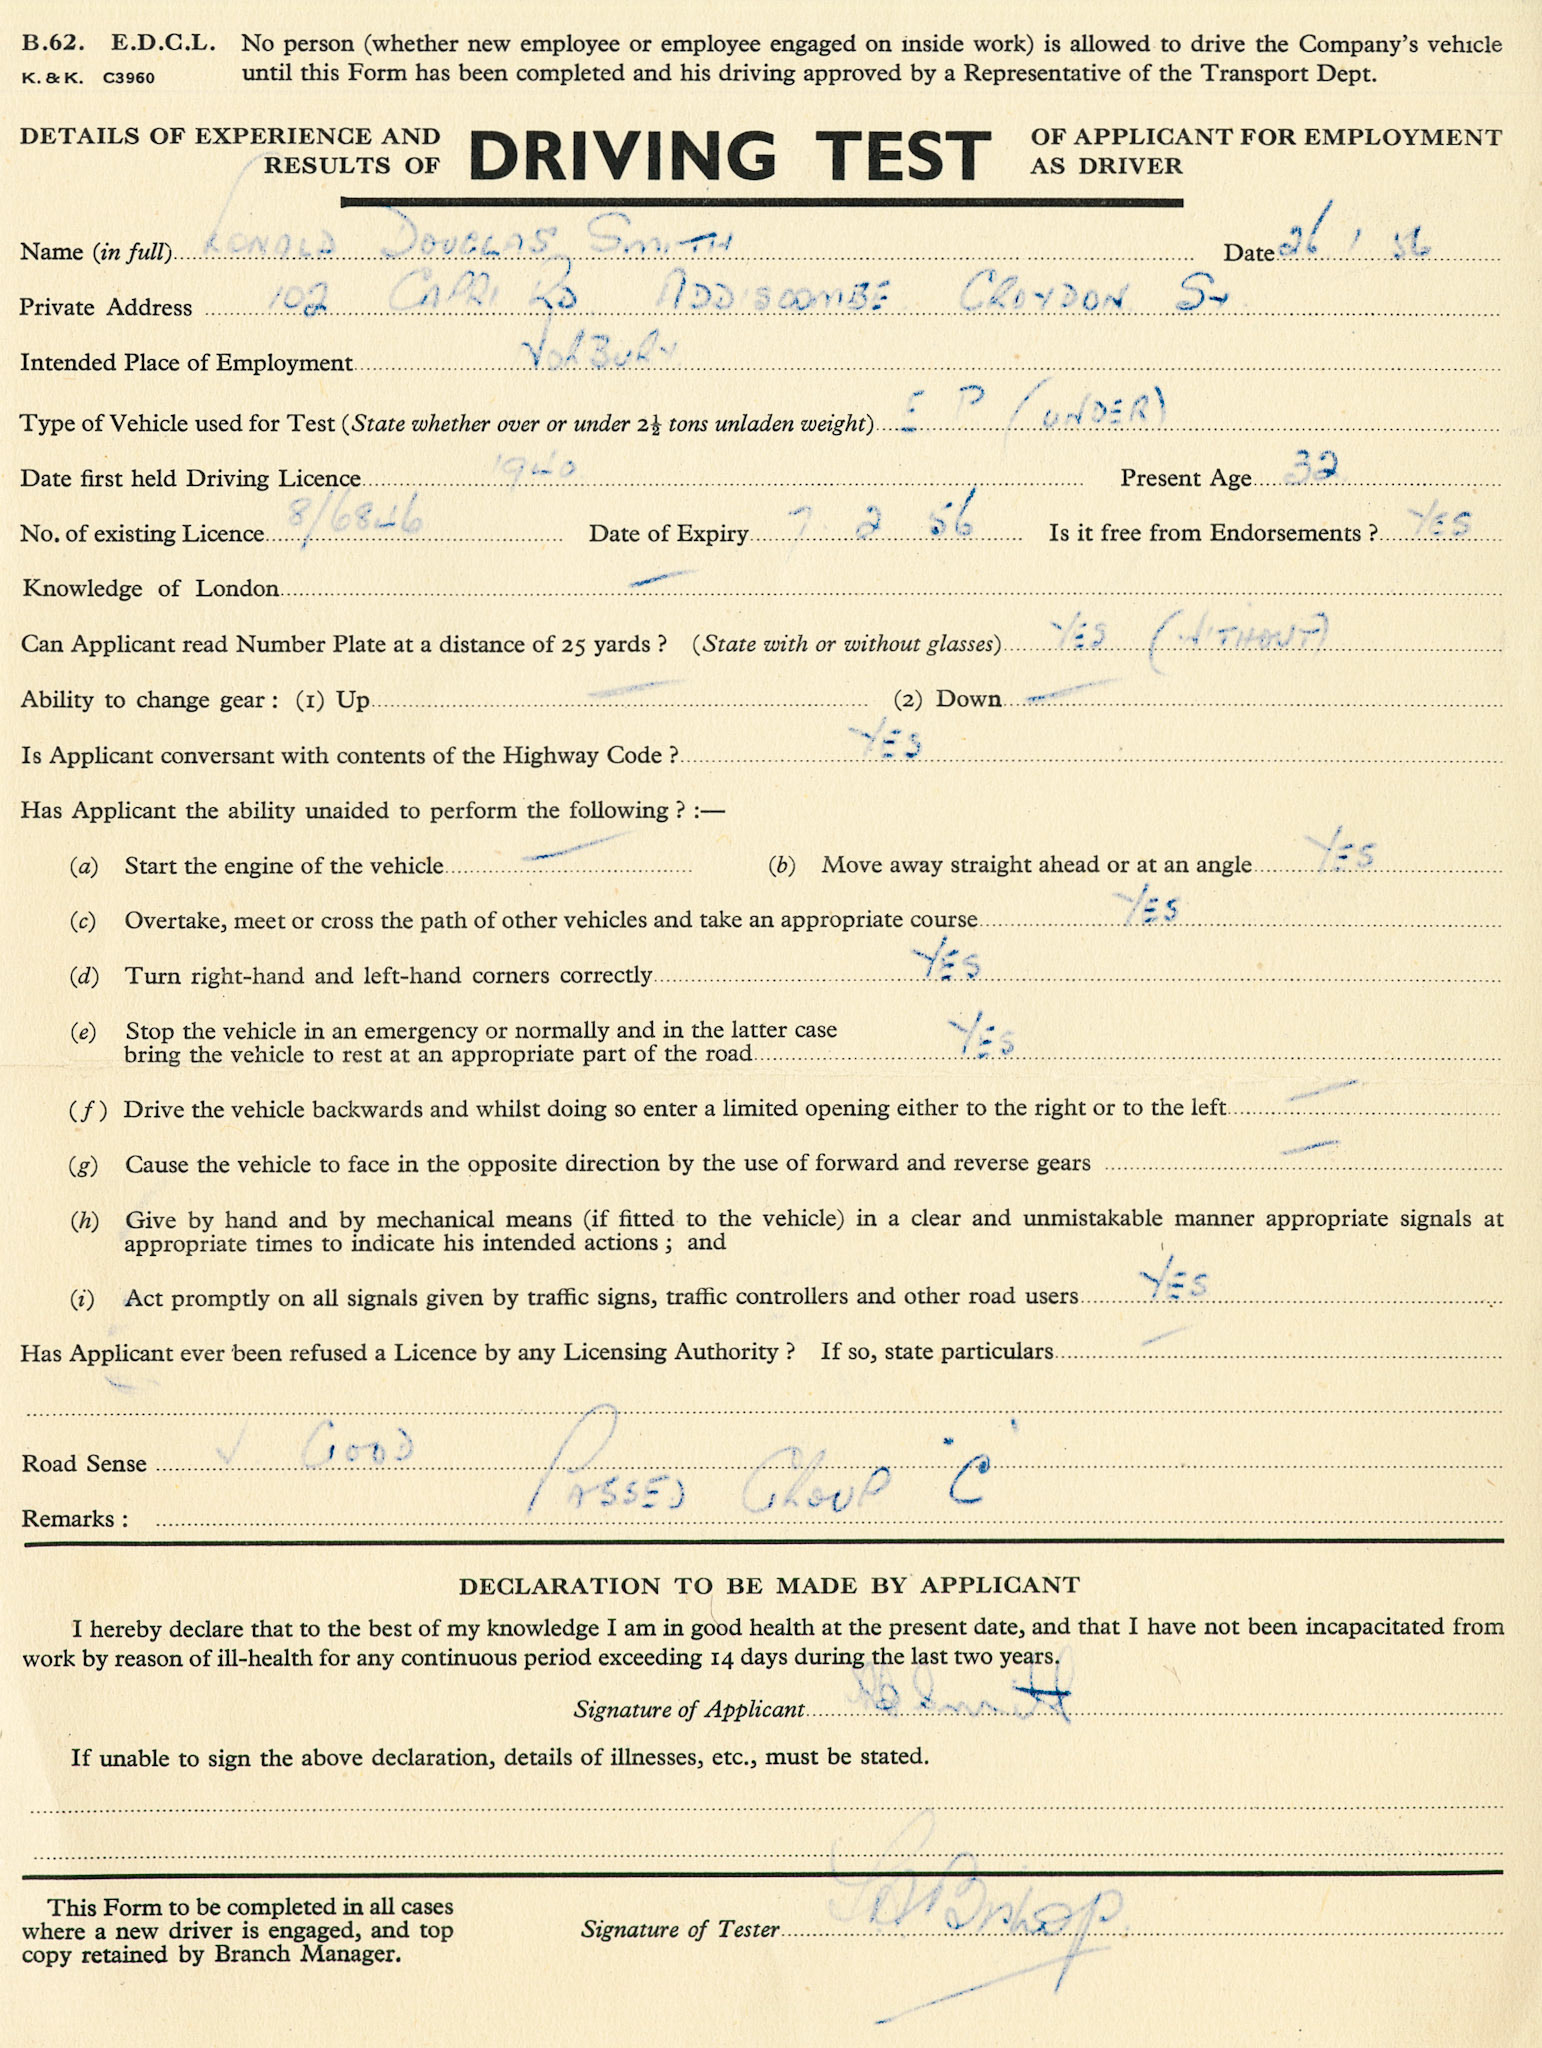 B.62. E.D.C.L. No person (whether new employee or employee engaged on inside work) is allowed to drive the Company's vehicle
K. & K. C3960 until this Form has been completed and his driving approved by a Representative of the Transport Dept.
DETAILS OF EXPERIENCE AND RESULTS OF DRIVING TEST OF APPLICANT FOR EMPLOYMENT AS DRIVER
Name (in full) DOUGLAS SMITH Date 26 1 56
Private Address 102 CAPRI RD ADDISCOMBE CROYDON Sy
Intended Place of Employment NORBURY
Type of Vehicle used for Test (State whether over or under 2½ tons unladen weight) E P (UNDER)
Date first held Driving Licence 1940 Present Age 32
No. of existing Licence 8/6846 Date of Expiry 7 2 56 Is it free from Endorsements ? YES
Knowledge of London —
Can Applicant read Number Plate at a distance of 25 yards ? (State with or without glasses) YES (WITHOUT)
Ability to change gear : (1) Up — (2) Down —
Is Applicant conversant with contents of the Highway Code ? YES
Has Applicant the ability unaided to perform the following ? :—
(a) Start the engine of the vehicle — (b) Move away straight ahead or at an angle YES
(c) Overtake, meet or cross the path of other vehicles and take an appropriate course YES
(d) Turn right-hand and left-hand corners correctly YES
(e) Stop the vehicle in an emergency or normally and in the latter case
bring the vehicle to rest at an appropriate part of the road YES
(f) Drive the vehicle backwards and whilst doing so enter a limited opening either to the right or to the left —
(g) Cause the vehicle to face in the opposite direction by the use of forward and reverse gears —
(h) Give by hand and by mechanical means (if fitted to the vehicle) in a clear and unmistakable manner appropriate signals at
appropriate times to indicate his intended actions ; and
(i) Act promptly on all signals given by traffic signs, traffic controllers and other road users YES
Has Applicant ever been refused a Licence by any Licensing Authority ? If so, state particulars —
Road Sense ✓ GOOD
Remarks : PASSED GROUP "C"
DECLARATION TO BE MADE BY APPLICANT
I hereby declare that to the best of my knowledge I am in good health at the present date, and that I have not been incapacitated from
work by reason of ill-health for any continuous period exceeding 14 days during the last two years.
Signature of Applicant Smith
If unable to sign the above declaration, details of illnesses, etc., must be stated.
This Form to be completed in all cases
where a new driver is engaged, and top
copy retained by Branch Manager.
Signature of Tester Bishop